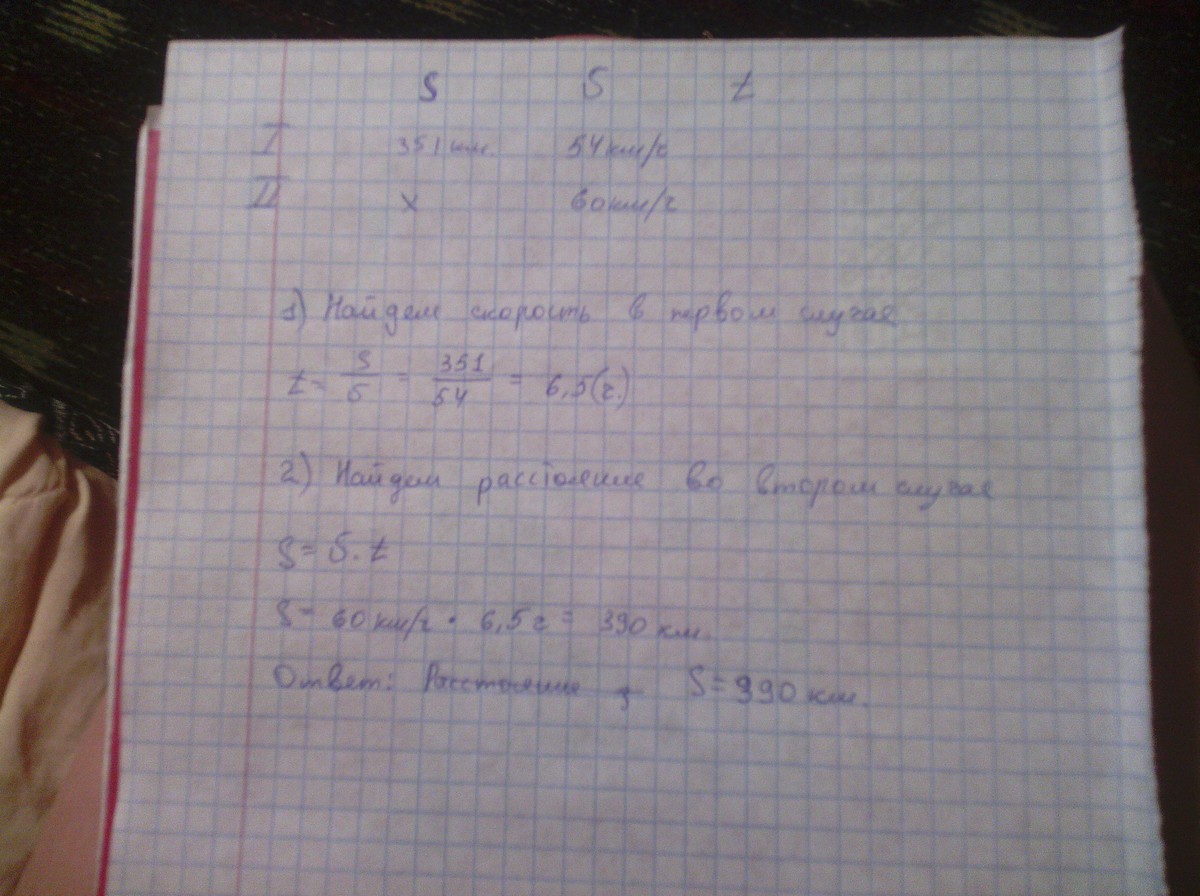 S S t
I 351 км. 54 км/ч
II x 60 км/ч
1) Найдем скорость в первом случае
t = S/S = 351/54 = 6,5 (ч.)
2) Найдем расстояние во втором случае
S = S · t
S = 60 км/ч · 6,5 ч = 390 км.
Ответ: Расстояние S = 390 км.